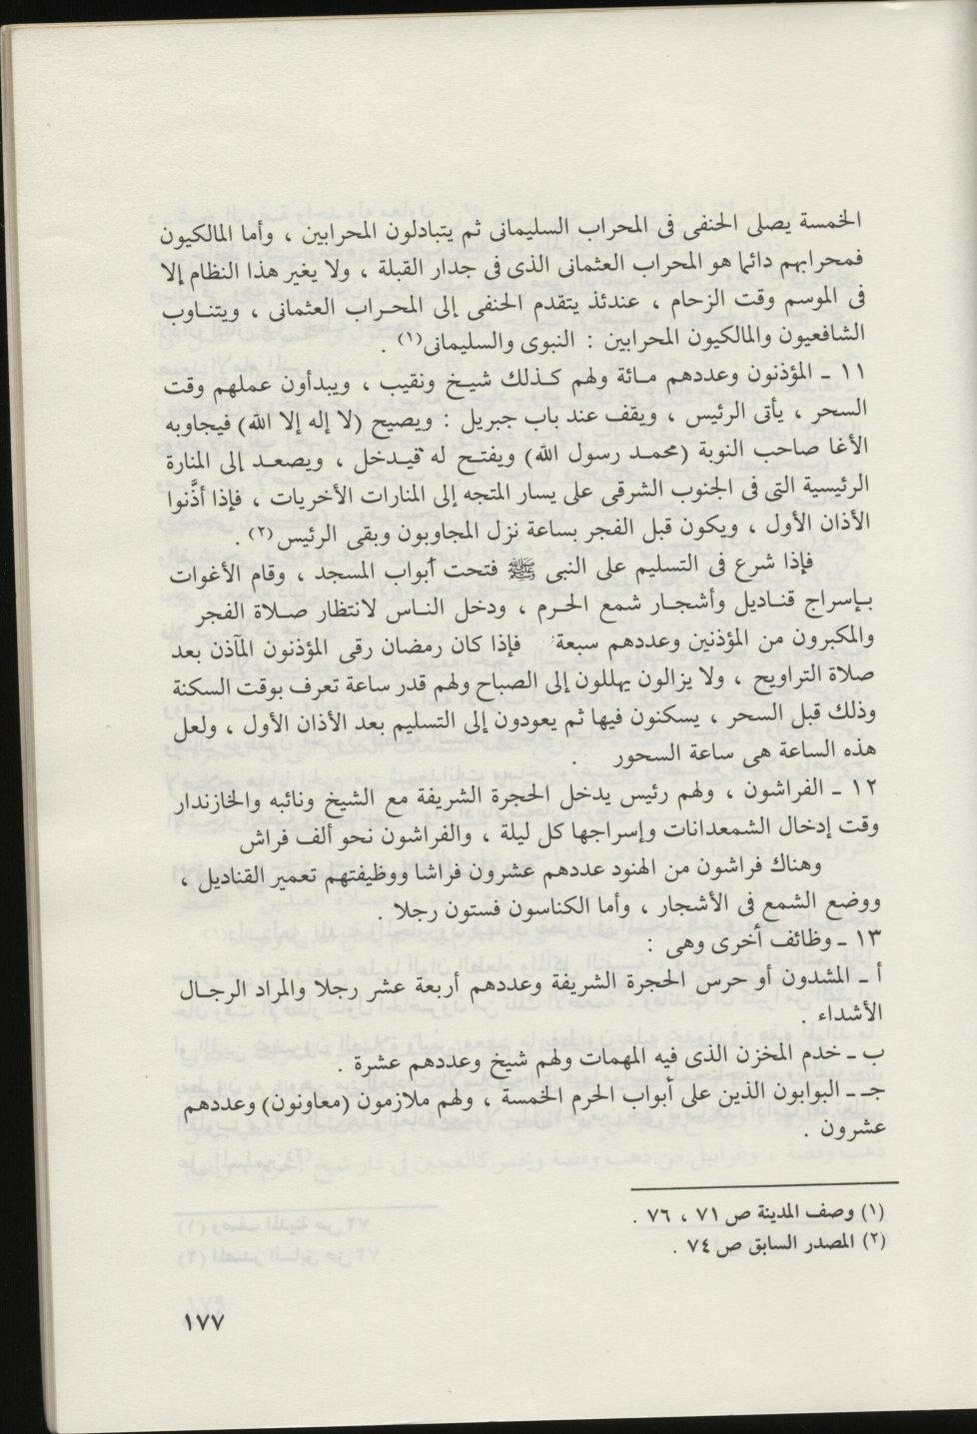 الخمسة يصلى الحنفى فى المحراب السليمانى ثم يتبادلون المحرابين ، وأما المالكيون
فمحرابهم دائما هو المحراب العثمانى الذى فى جدار القبلة ، ولا يغير هذا النظام إلا
فى الموسم وقت الزحام ، عندئذ يتقدم الحنفى إلى المحـراب العثمانى ، ويتنـاوب
الشافعيون والمالكيون المحرابين : النبوى والسليمانى(١) .
١١ ـ المؤذنون وعددهم مـائة ولهم كـذلك شيـخ ونقيب ، ويبدأون عملهم وقت
السحر ، يأتى الرئيس ، ويقف عند باب جبريل : ويصيح (لا إله إلا الله) فيجاوبه
الأغا صاحب النوبة (محمـد رسول الله) ويفتـح له فيـدخل ، ويصعـد إلى المنارة
الرئيسية التى فى الجنوب الشرقى على يسار المتجه إلى المنارات الأخريات ، فإذا أذَّنوا
الأذان الأول ، ويكون قبل الفجر بساعة نزل المجاوبون وبقى الرئيس(٢) .
فإذا شرع فى التسليم على النبى ﷺ فتحت أبواب المسجد ، وقام الأغوات
بـإسراج قنـاديل وأشجـار شمع الحـرم ، ودخل النـاس لانتظار صـلاة الفجر
والمكبرون من المؤذنين وعددهم سبعة فإذا كان رمضان رقى المؤذنون المآذن بعد
صلاة التراويح ، ولا يزالون يهللون إلى الصباح ولهم قدر ساعة تعرف بوقت السكنة
وذلك قبل السحر ، يسكنون فيها ثم يعودون إلى التسليم بعد الأذان الأول ، ولعل
هذه الساعة هى ساعة السحور .
١٢ ـ الفراشون ، ولهم رئيس يدخل الحجرة الشريفة مع الشيخ ونائبه والخازندار
وقت إدخال الشمعدانات وإسراجها كل ليلة ، والفراشون نحو ألف فراش
وهناك فراشون من الهنود عددهم عشرون فراشا ووظيفتهم تعمير القناديل ،
ووضع الشمع فى الأشجار ، وأما الكناسون فستون رجلا .
١٣ ـ وظائف أخرى وهى :
أ ـ المشدون أو حرس الحجرة الشريفة وعددهم أربعة عشر رجلا والمراد الرجـال
الأشداء .
ب ـ خدم المخزن الذى فيه المهمات ولهم شيخ وعددهم عشرة .
جـ ـ البوابون الذين على أبواب الحرم الخمسة ، ولهم ملازمون (معاونون) وعددهم
عشرون .
(١) وصف المدينة ص ٧١ ، ٧٦ .
(٢) المصدر السابق ص ٧٤ .
١٧٧